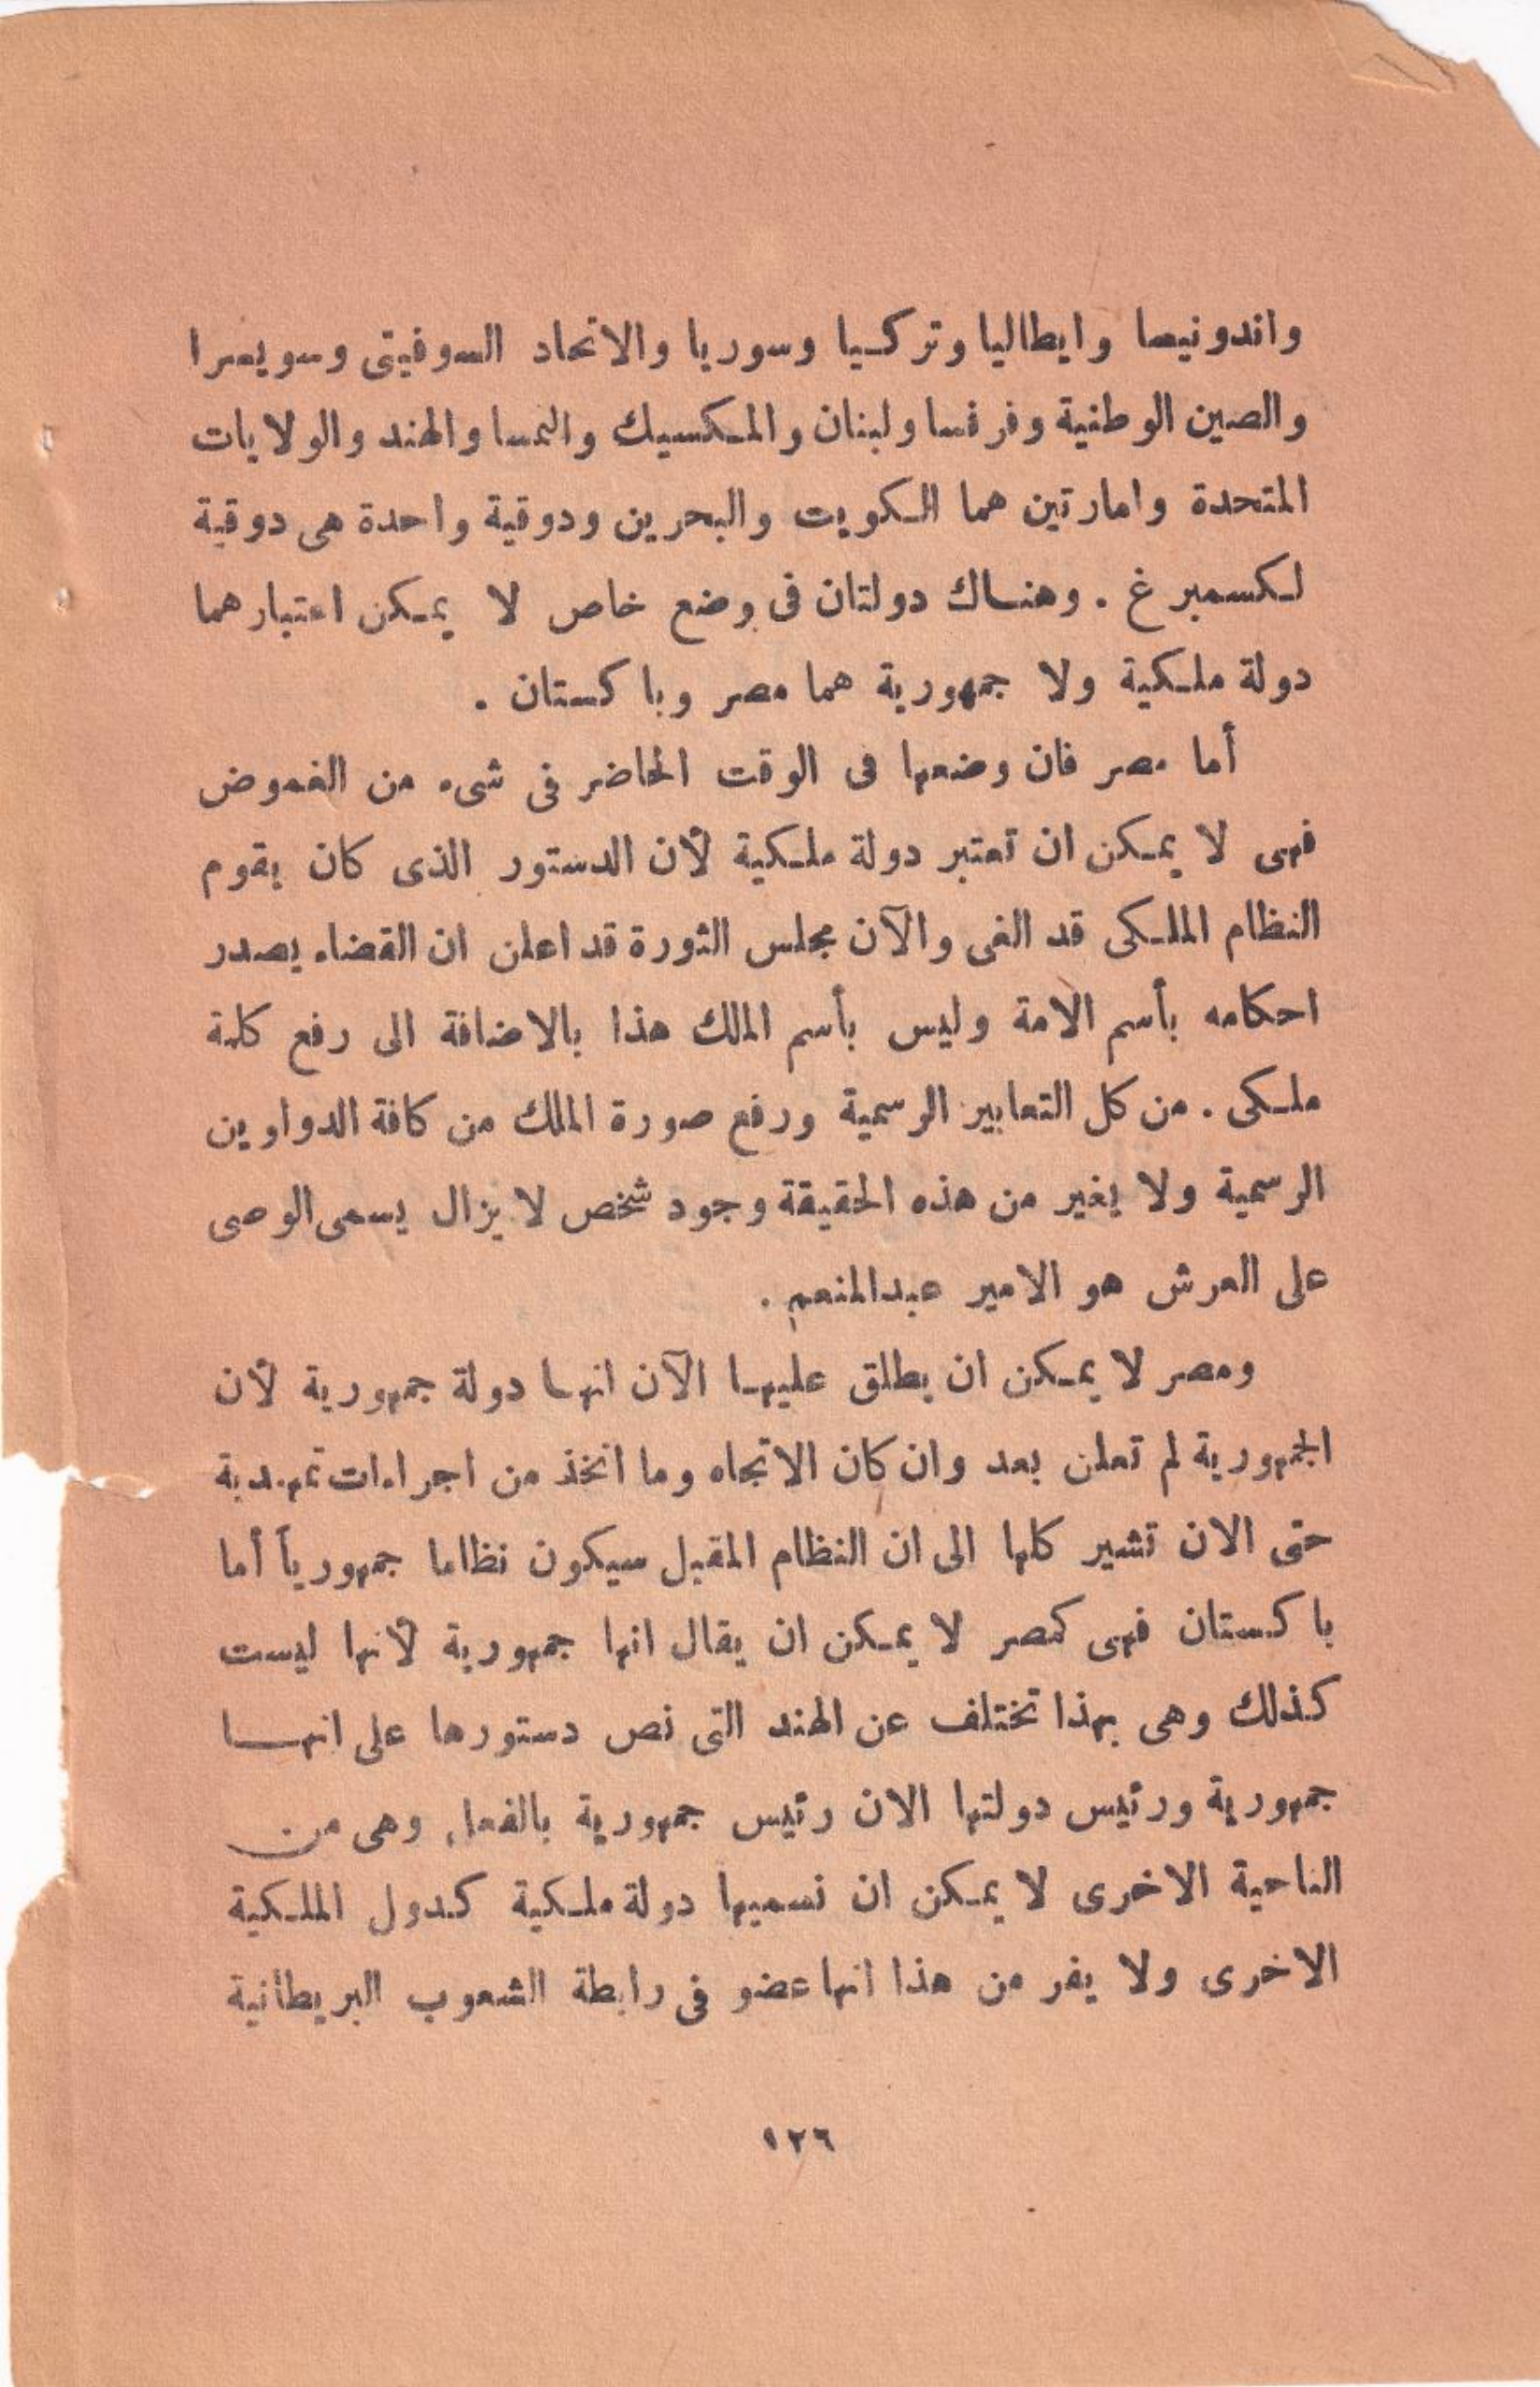 واندونيسا وايطاليا وتركيا وسوريا والاتحاد السوفيتى وسويسرا
والصين الوطنية وفرنسا ولبنان والمكسيك والنمسا والهند والولايات
المتحدة وامارتين هما الكويت والبحرين ودوقية واحدة هى دوقية
لكسمبرغ . وهناك دولتان فى وضع خاص لا يمكن اعتبارهما
دولة ملكية ولا جمهورية هما مصر وباكستان .
أما مصر فان وضعها فى الوقت الحاضر فى شىء من الغموض
فهى لا يمكن ان تعتبر دولة ملكية لأن الدستور الذى كان يقوم
النظام الملكى قد الغى والآن مجلس الثورة قد اعلن ان القضاء يصدر
احكامه بأسم الامة وليس بأسم الملك هذا بالاضافة الى رفع كلمة
ملكى . من كل التعابير الرسمية ورفع صورة الملك من كافة الدواوين
الرسمية ولا يغير من هذه الحقيقة وجود شخص لا يزال يسمى الوصى
على العرش هو الامير عبدالمنعم .
ومصر لا يمكن ان يطلق عليها الآن انها دولة جمهورية لأن
الجمهورية لم تعلن بعد وان كان الاتجاه وما اتخذ من اجراءات تمهيدية
حتى الان تشير كلها الى ان النظام المقبل سيكون نظاما جمهورياً أما
باكستان فهى كمصر لا يمكن ان يقال انها جمهورية لأنها ليست
كذلك وهى بهذا تختلف عن الهند التى نص دستورها على انها
جمهورية ورئيس دولتها الان رئيس جمهورية بالفعل وهى من
الناحية الاخرى لا يمكن ان نسميها دولة ملكية كدول الملكية
الاخرى ولا يفر من هذا انها عضو فى رابطة الشعوب البريطانية
١٢٦